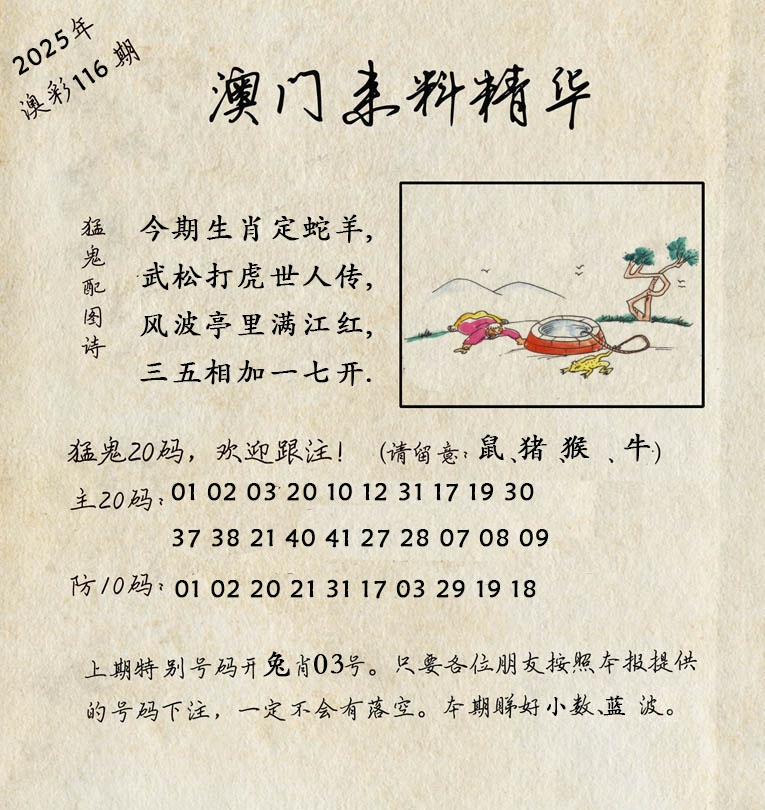 2025年
澳彩116期
澳门来料精华
猛鬼配图诗
今期生肖定蛇羊,
武松打虎世人传,
风波亭里满江红,
三五相加一七开.
猛鬼20码，欢迎跟注！（请留意：鼠、猪、猴、牛）
主20码：01 02 03 20 10 12 31 17 19 30
37 38 21 40 41 27 28 07 08 09
防10码：01 02 20 21 31 17 03 29 19 18
上期特别号码开兔肖03号。只要各位朋友按照本报提供
的号码下注，一定不会有落空。本期睇好小数、蓝波。